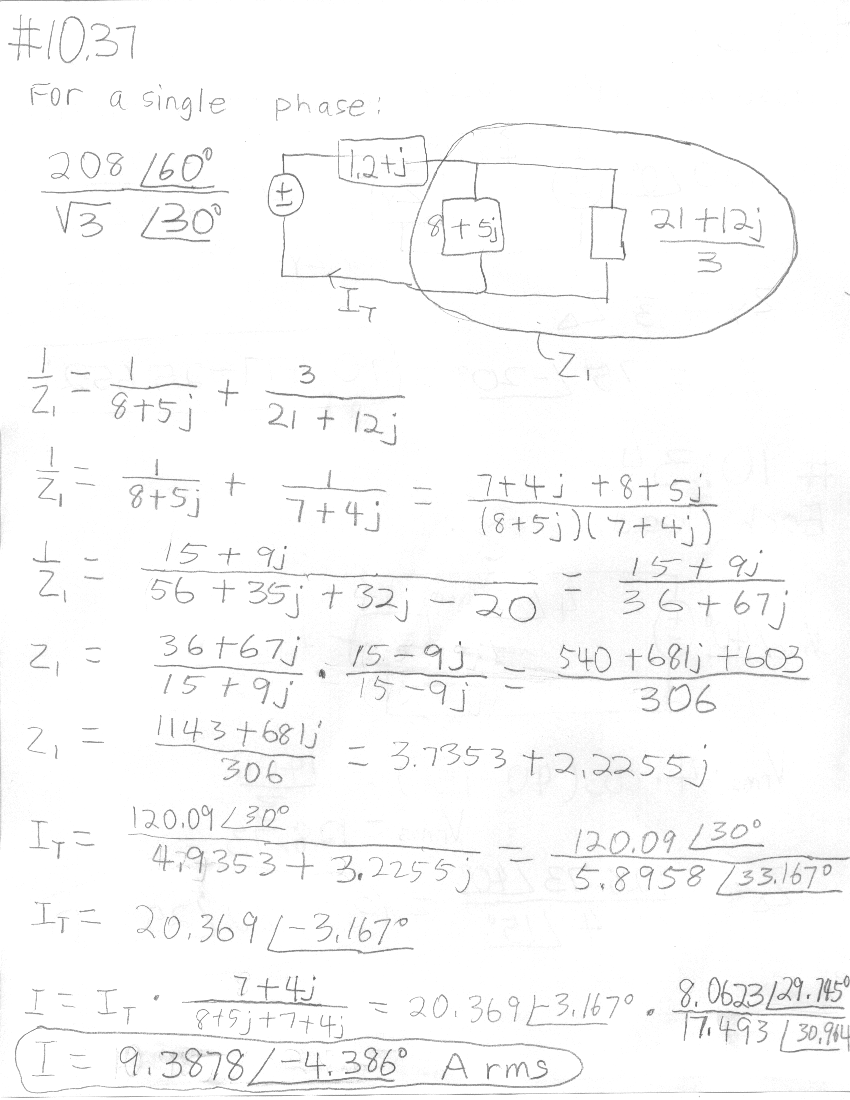 #10.37
For a single phase:
208 ∠60° / √3 ∠30°
±
1.2+j
8+5j
21+12j / 3
I_T
Z₁
1/Z₁ = 1/(8+5j) + 3/(21+12j)
1/Z₁ = 1/(8+5j) + 1/(7+4j) = (7+4j+8+5j)/((8+5j)(7+4j))
1/Z₁ = (15+9j)/(56+35j+32j-20) = (15+9j)/(36+67j)
Z₁ = (36+67j)/(15+9j) · (15-9j)/(15-9j) = (540+681j+603)/306
Z₁ = (1143+681j)/306 = 3.7353+2.2255j
I_T = 120.09∠30° / (4.9353+3.2255j) = 120.09∠30° / 5.8958∠33.167°
I_T = 20.369∠-3.167°
I = I_T · (7+4j)/(8+5j+7+4j) = 20.369∠-3.167° · 8.0623∠29.745° / 17.493∠30.964
I = 9.3878∠-4.386° A rms